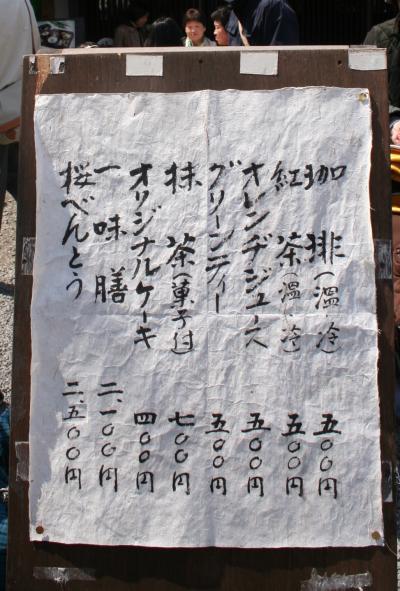 珈琲（温・冷） 五〇〇円
紅茶（温・冷） 五〇〇円
オレンヂジュース 五〇〇円
グリーンティー 五〇〇円
抹茶（菓子付） 七〇〇円
オリジナルケーキ 四〇〇円
一味膳 二、一〇〇円
桜べんとう 二、五〇〇円